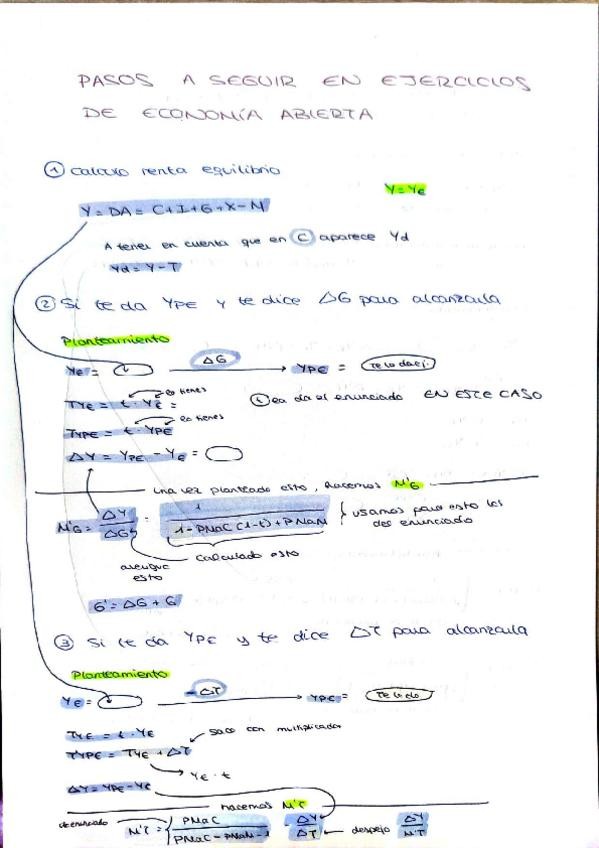 PASOS A SEGUIR EN EJERCICIOS
DE ECONOMÍA ABIERTA
① Calculo renta equilibrio
Y = Ye
Y = DA = C+I+G+X-M
A tener en cuenta que en C aparece Yd
Yd = Y-T
② Si te da YPE y te dice ΔG para alcanzarla
Planteamiento
Ye = ΔG YPE = te lo da ej.
TYE = t · YE = lo tienes
(t) ea da el enunciado EN ESTE CASO
TYPE = t · YPE lo tienes
ΔY = YPE - YE =
una vez planteado esto, hacemos M'G
M'G = ΔY/ΔG = 1/1-PMaC(1-t)+PMaM } usamos para esto los del enunciado
averigue esto
Calculado esto
G' = ΔG + G
③ Si te da YPE y te dice ΔT para alcanzarla
Planteamiento
YE = -ΔT YPE = te lo da
TYE = t · YE
saco con multiplicador
TYPE = TYE + ΔT
YE · t
ΔY = YPE - YE
hacemos M'T
de enunciado M'T = { PMaC/PMaC - PMaM - 1 = ΔY/ΔT despejo ΔY/M'T